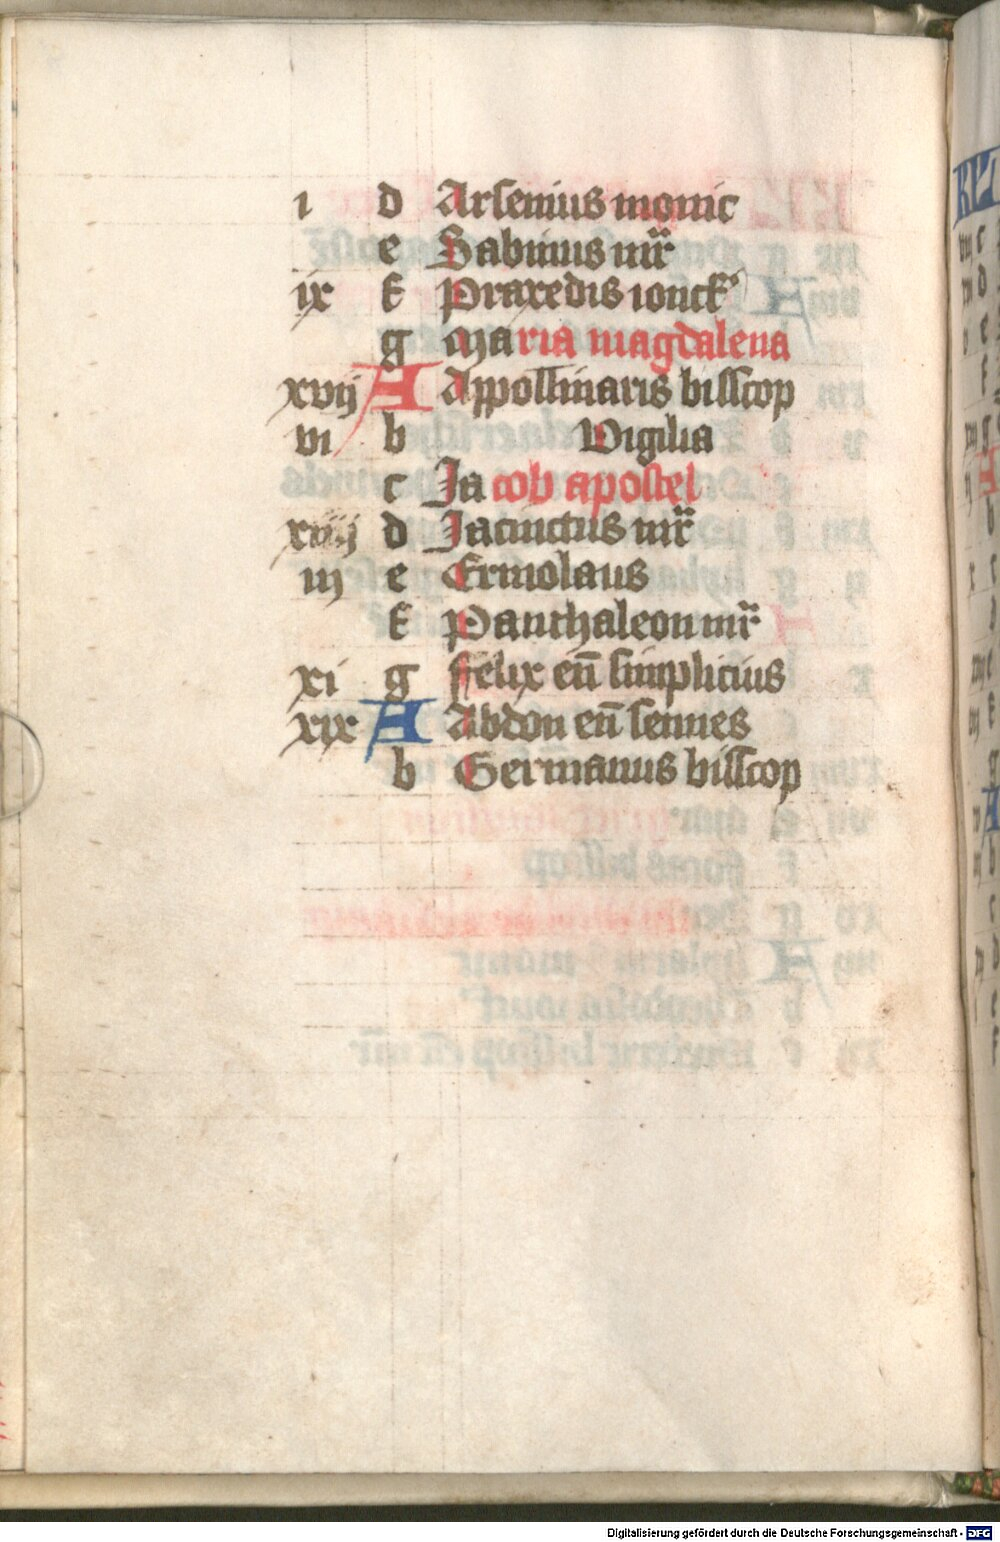 i d Arsenius monic
e Sabinus mr̄
ix f Praxedis ionckᵉ
g Maria magdalena
xvij A Appollinaris bisscop
vi b Vigilia
c Jacob apostel
xiiij d Jacinctus mr̄
iij e Ermolaus
f Panthaleon mr̄
xi g Felix en̄ simplicius
xix A Abdon en̄ sennes
b Germanus bisscop
Digitalisierung gefördert durch die Deutsche Forschungsgemeinschaft - DFG